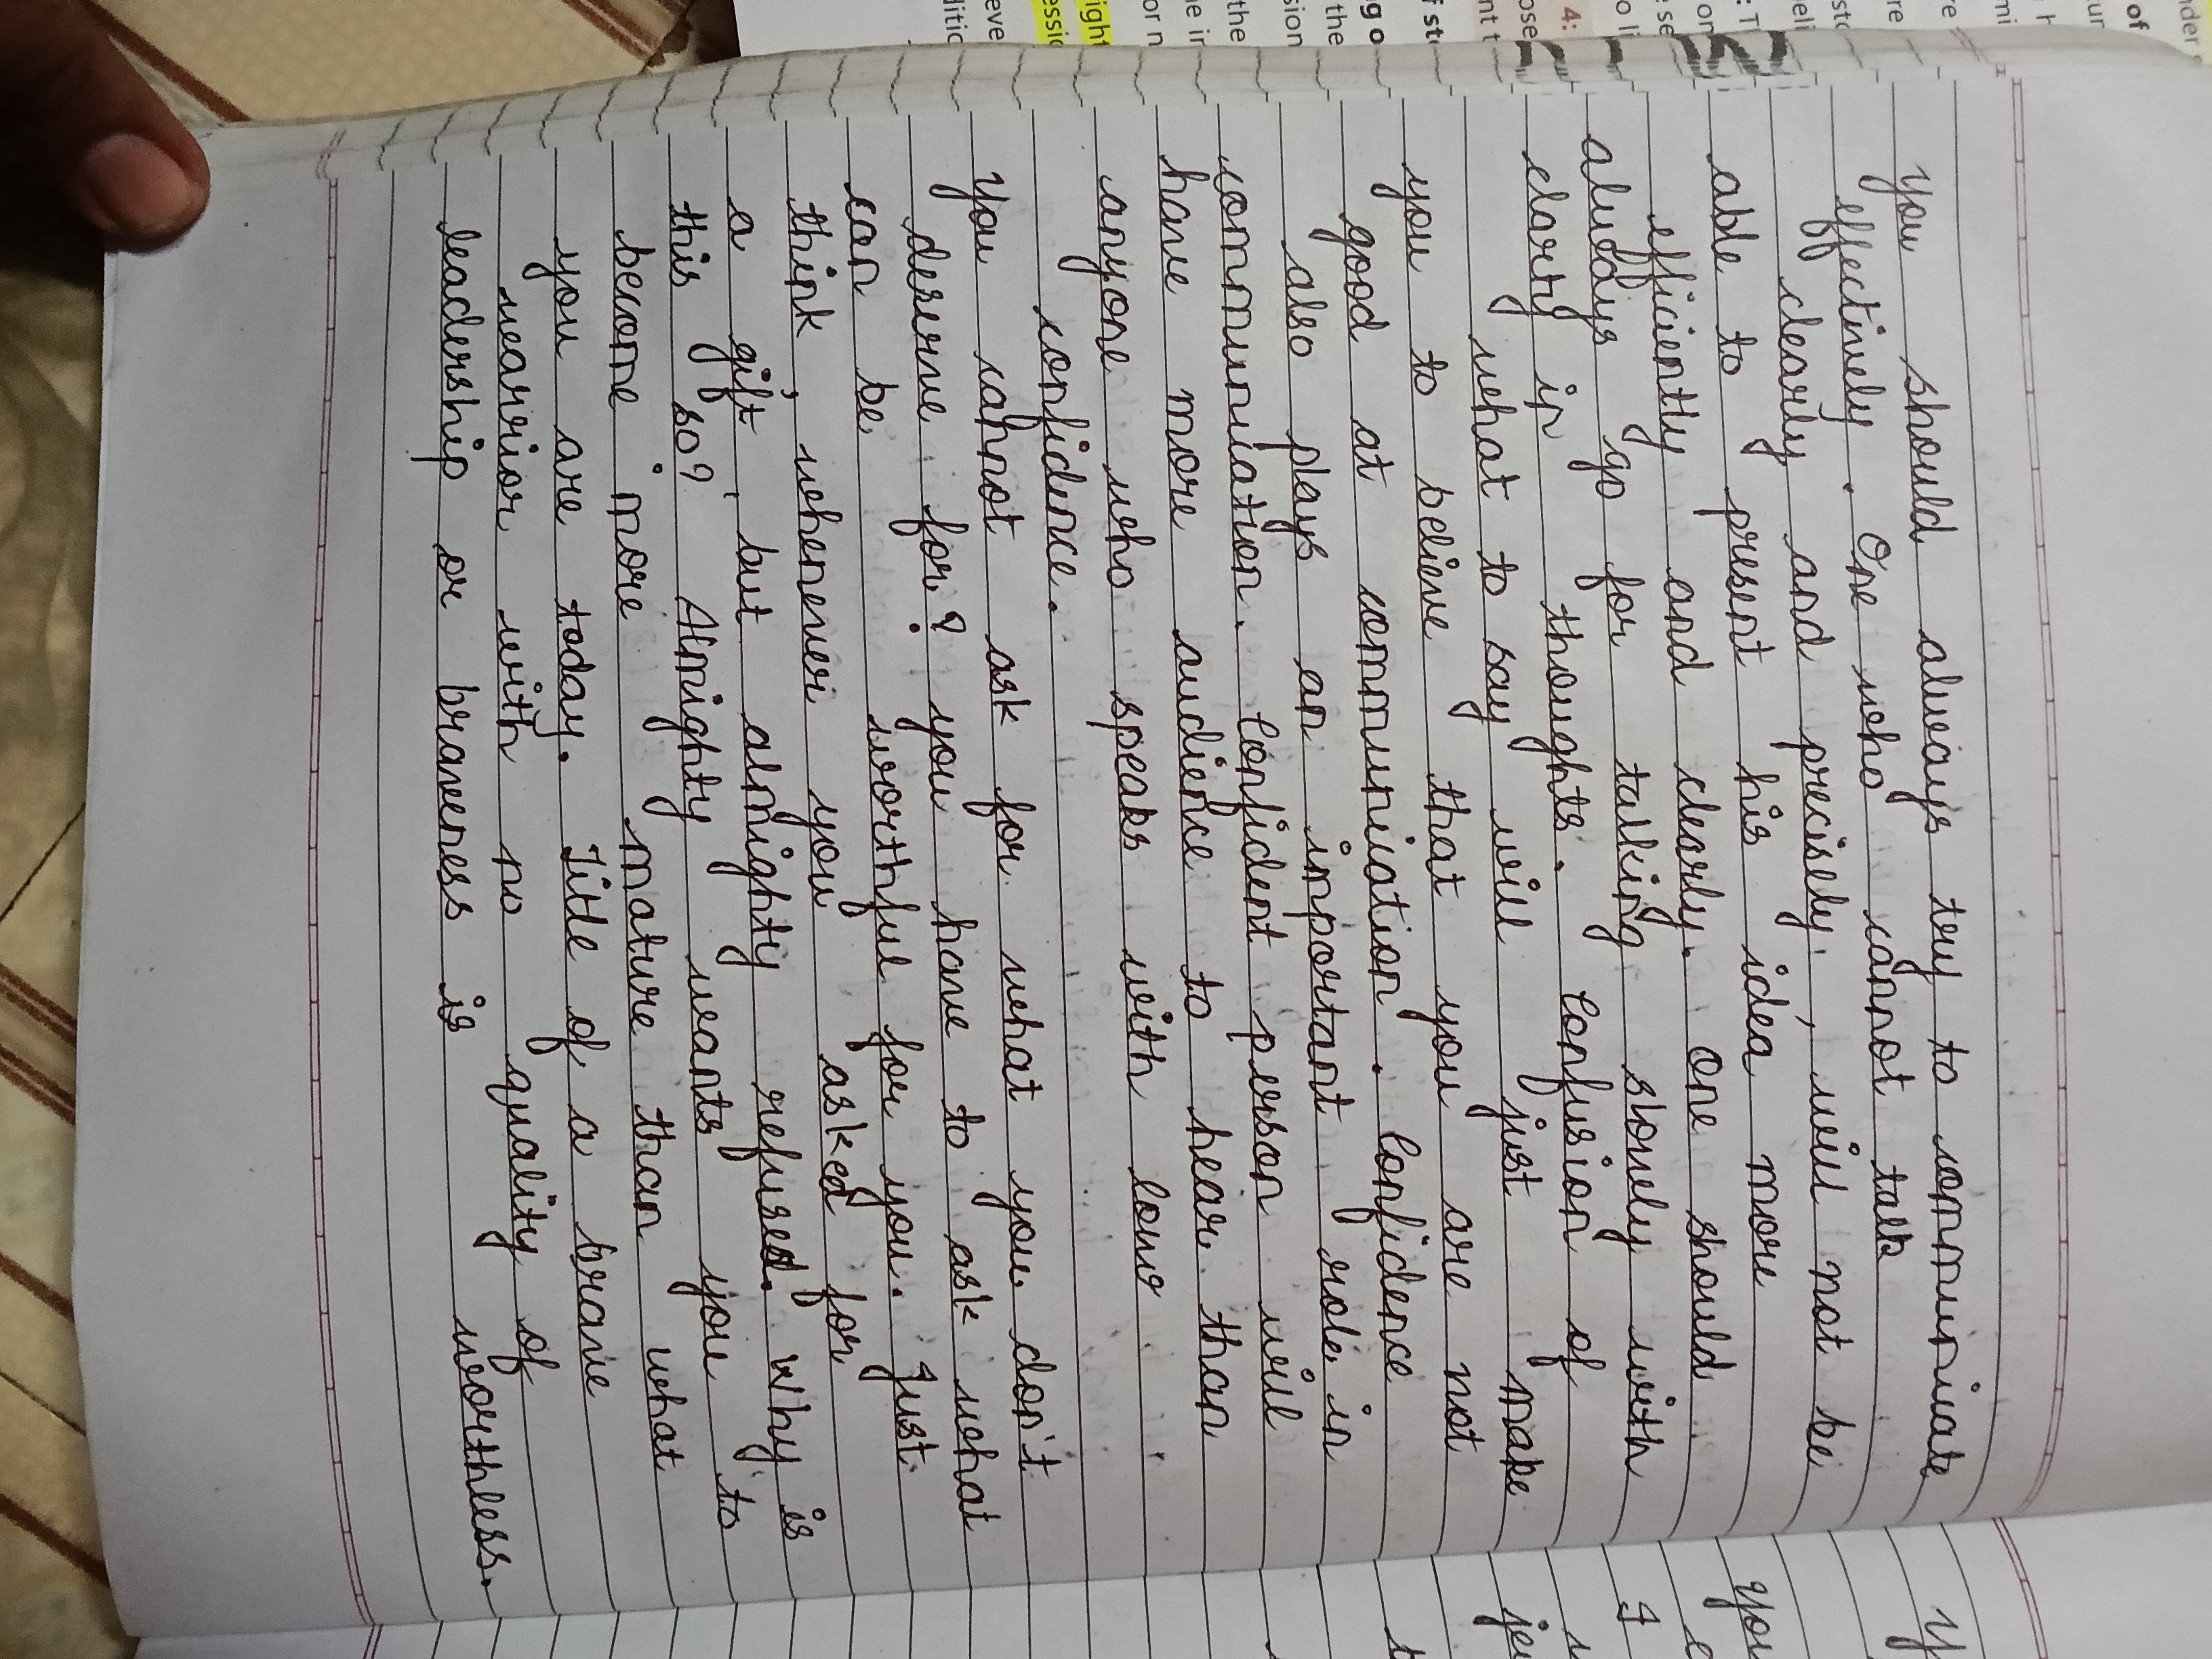 you should always try to communicate
effectively. One who cannot talk
clearly and precisely, will not be
able to present his idea more
efficiently and clearly. One should
aluddys go for talking slowely with
clarty in thoughts. Confusion of
what to say will just make
you to believe that you are not
good at communication. Confidence
also plays an important role in
communication. Confident person will
have more audience to hear than
anyone who speaks with low
confidence.
you cannot ask for what you don't
deserve for? you have to ask what
can be worthful for you. Just
think, whenever you asked for
a gift, but almighty refused. Why is
this so? Almighty wants you to
become more mature than what
you are today. Title of a brave
wearrior with no quality of
leadership or braveness is worthless.
ight
essio
eve
ditic
or n
e in
the
sion
the
g o
f st
nt t
ose
4:
o li
se
on
: T
eli
sto
re
mi
re
h
ur
of
nder
y
you
e
I
je